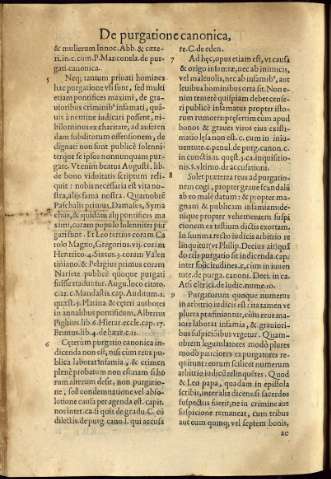 De purgatione canonica,
& mulierum Innoc. Abb. & cæte-
ri. in. c. cum P. Manconela. de pur-
gati. canonica.
5 Neq; tantum priuati homines
hac purgatione vsi sunt, sed multi
etiam pontifices maximi, de gra-
uioribus criminib' infamati, quã-
uis à nemine iudicari possent, ni-
hilominus ex charitate, ad auferen-
dam subditorum offensionem, de-
dignati non sunt publicè solenni-
terque se ipsos nonnunquam pur-
gare. Vt enim beatus August. lib.
de bono viduitatis scriptum reli-
quit: nobis necessaria est vita no-
stra, aliis fama nostra. Quamobrẽ
Paschalis primus, Damasus, Syma
chus, & quidam alij pontifices ma
ximi, coram populo solenniter pur
gati sunt. Et Leo tertius coram Ca
rolo Magno, Gregorius. vij. coram
Henrico. 4. Sixtus. 3. coram Valen
tiniano. & Pelagius primus coram
Narsete publicè quoque purgati
fuisse traduntur. Aug. loco citato.
c. Mandastis. cap. Auditum. 2.
quæst. 5. Platina & cæteri authores
in annalibus pontificum, Albertus
Pighius lib. 6. Hierar. eccle. cap. 17.
6 Cæterum purgatio canonica in-
dicenda non est, nisi cùm reus pu-
blica laborat infamia, & crimen
plenè probatum non est: nam si ho
rum alterum desit, non purgatio-
ne, sed condemnatione vel abso-
lutione causa peragenda est. capit.
nos inter. ca. di quit de gradu. C. ex
dilectis. de purg. cano. l. qui accusa
re. C. de eden.
7 Ad hęc, opus etiam est, vt causa
& origo infamiæ, nec ab inimicis,
vel maleuolis, nec ab infamib', aut
leuibus hominibus orta sit. Non e-
nim temerè quispiam debet cense-
ri publicè infamatus propter isto-
rum rumorem: præsertim cùm apud
bonos & graues viros eius existi-
matio læsa non est. c. cum in iuue-
nẽt. de purg. can. c.
in cunctis.
nis. §. vltimo. de accusatio.
8 Solet præterea reus ad purgatio-
nem cogi, propter graue scandalũ
ab eo male datum: & propter ma-
gnam & publicam infamiam: de-
nique propter vehementem suspi
cionem ex testium dictis exortam.
In summa res hæc iudicis arbitrio re
linquitur, vt Philip. Decius ait, quã
do reis purgatio sit indicenda. cap.
inter sollicitudines. 2. cum in iuuen
tute. de purga. canoni. Deci. in ca.
At si clerici. de iudic. nume. 10.
9 Purgationum quoque numerus
in arbitrio iudicis est: nam tamen vt
plures præfiniantur, cùm reus ma-
iore laborat infamia, & grauiori-
bus suspicionibus vrgetur. Quam-
obrem legumlatores modò plures
modò pauciores ex purgatores re-
quirunt: eorum scilicet numerum
arbitrio iudicis relinquentes. Quod
& Leo papa, quodam in epistola
scribit, inter alia dicens: si sacerdos
suspectus fuerit, ne in crimine aut
suspicione remaneat, cum tribus
aut cum quinq; vel septem bonis,
ac